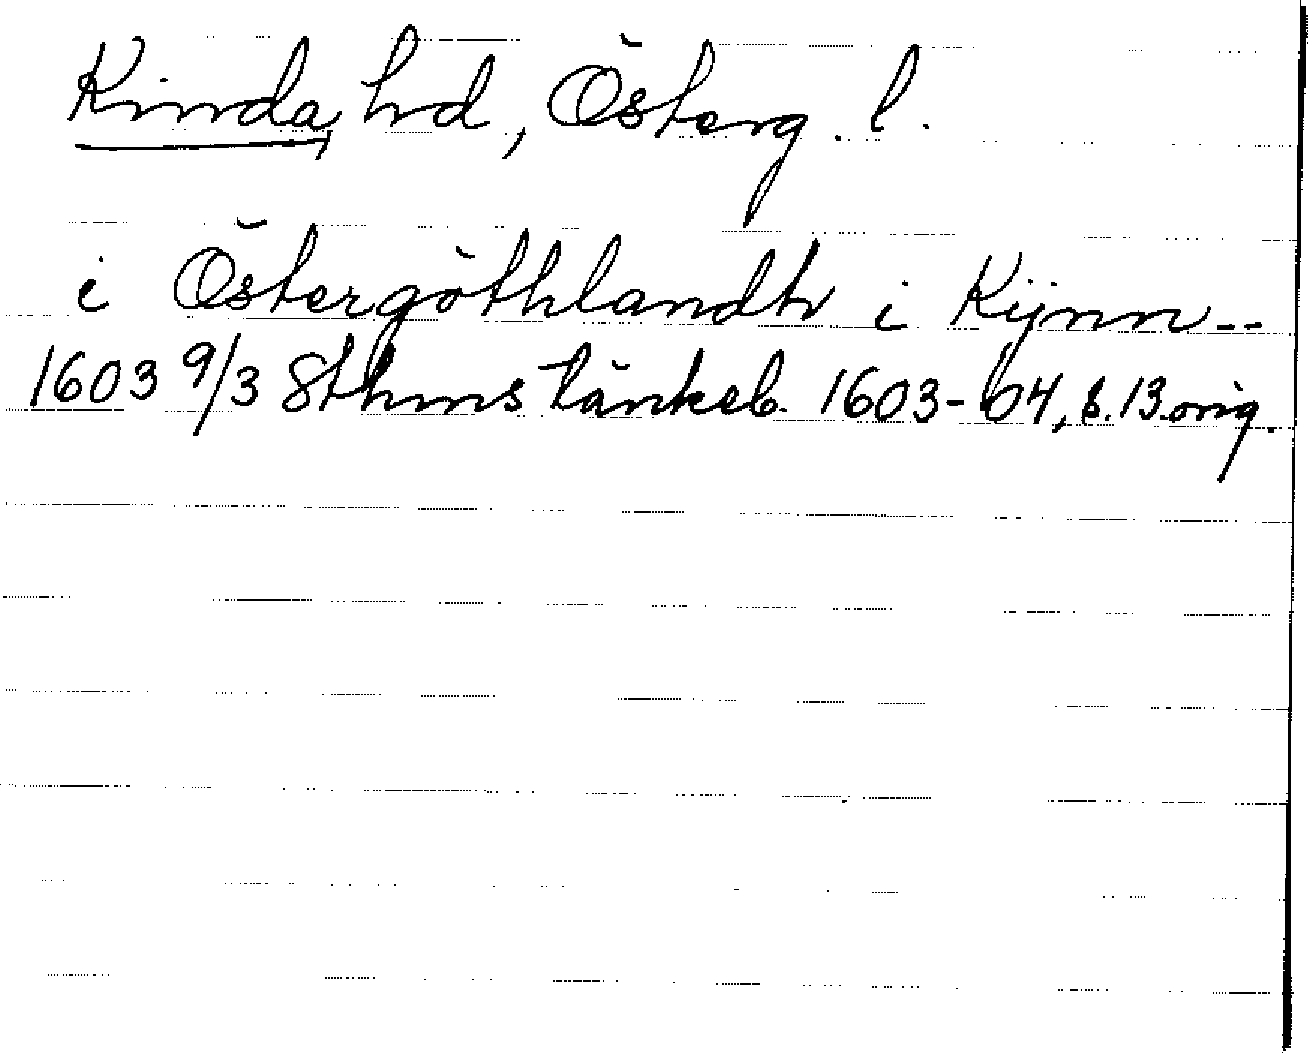 Kinda, hd, Österg. l.
i Östergöthlandh i Kijnn--
1603 9/3 Sthms tänkeb. 1603-04, s. 13. orig.